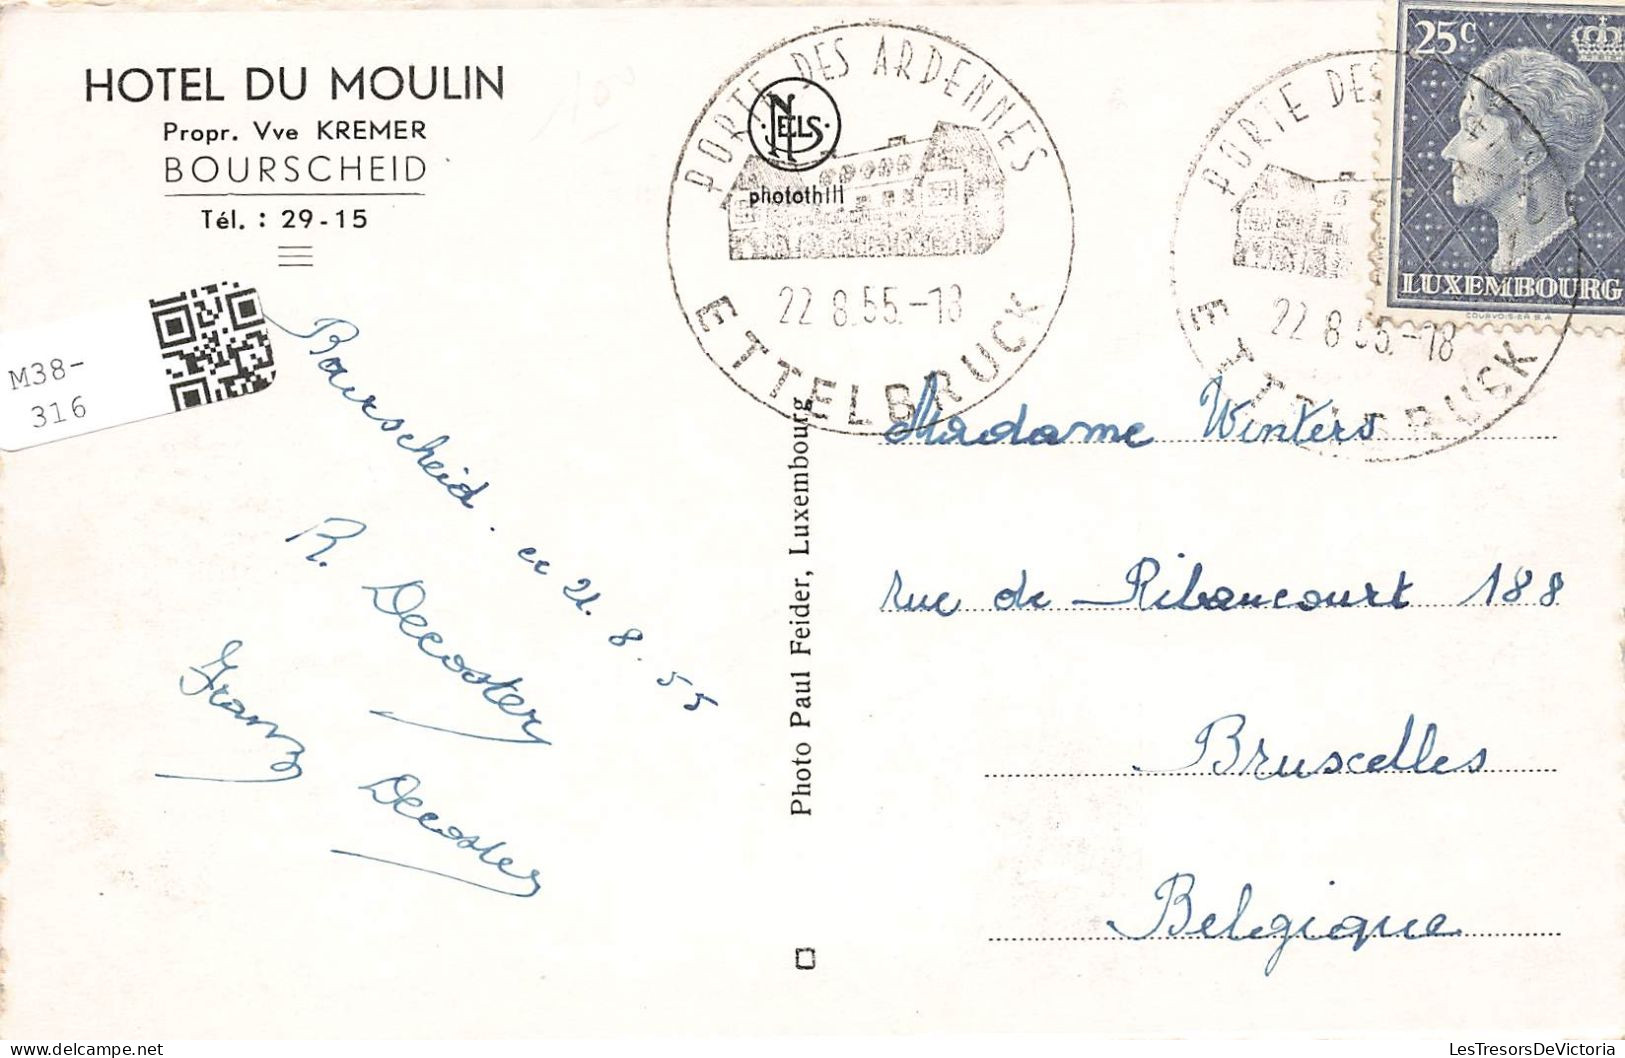 HOTEL DU MOULIN
Propr. Vve KREMER
BOURSCHEID
Tél. : 29-15
M38-
316
Bourscheid. ce 21.8.55
R. Decoster
Franz Decoster
Photo Paul Feider, Luxembourg
NELS
photothill
PORTE DES ARDENNES
22.8.55.-18
ETTELBRUCK
PORTE DES ARDENNES
22.8.55.-18
ETTELBRUCK
25c
LUXEMBOURG
COURVOISIER S.A.
Madame Winters
rue de Ribaucourt 188
Bruxelles
Belgique
LesTresorsDeVictoria